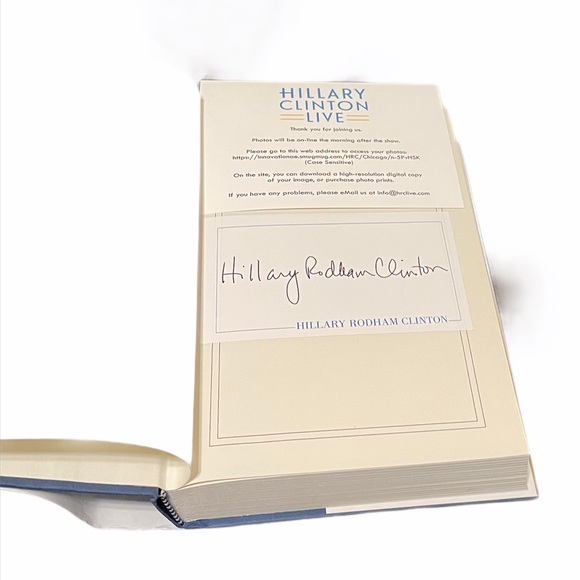 HILLARY
CLINTON
LIVE
Thank you for joining us.
Photos will be on-line the morning after the show.
Please go to this web address to access your photos:
https://innovationae.smugmug.com/HRC/Chicago/n-5PvHSK
(Case Sensitive)
On the site, you can download a high-resolution digital copy
of your image, or purchase photo prints.
If you have any problems, please eMail us at info@hrclive.com
Hillary Rodham Clinton
HILLARY RODHAM CLINTON